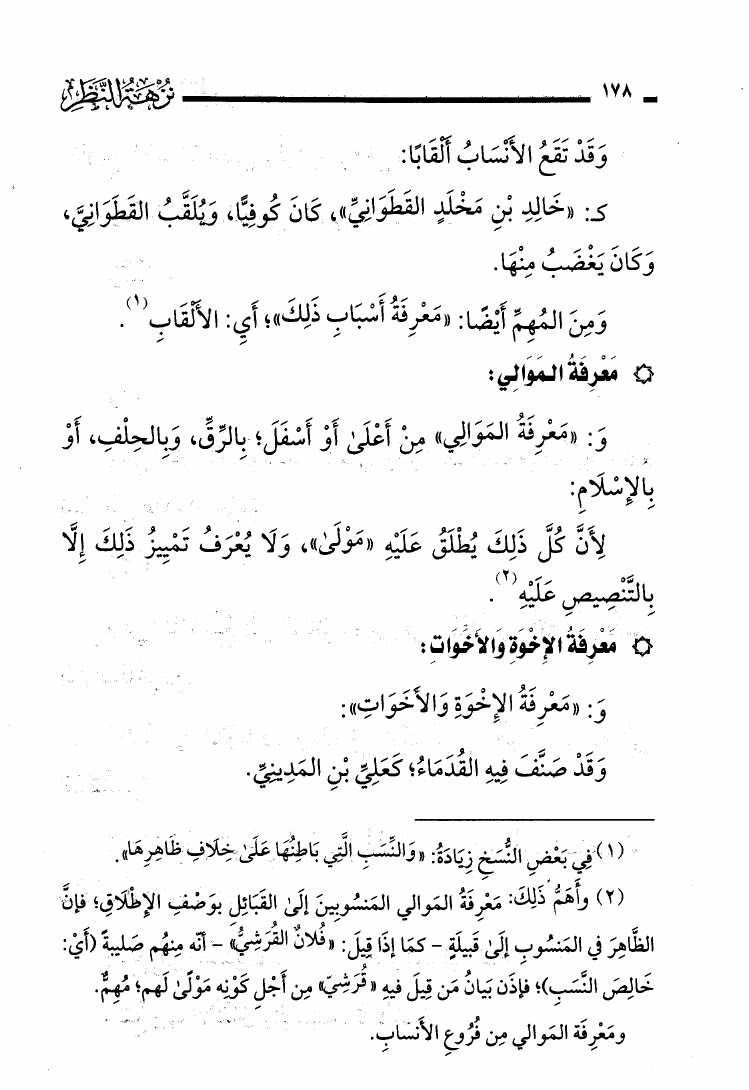 ١٧٨ نُزْهَةُ النَّظَرِ
وَقَدْ تَقَعُ الأَنْسَابُ أَلْقَابًا:
كـ: «خَالِدِ بْنِ مَخْلَدٍ القَطَوَانِيِّ»، كَانَ كُوفِيًّا، وَيُلَقَّبُ القَطَوَانِيَّ،
وَكَانَ يَغْضَبُ مِنْهَا.
وَمِنَ المُهِمِّ أَيْضًا: «مَعْرِفَةُ أَسْبَابِ ذَلِكَ»؛ أَيِ: الأَلْقَابِ(١).
۞ مَعْرِفَةُ المَوَالِي:
وَ: «مَعْرِفَةُ المَوَالِي» مِنْ أَعْلَىٰ أَوْ أَسْفَلَ؛ بِالرِّقِّ، وَبِالحِلْفِ، أَوْ
بِالإِسْلَامِ:
لِأَنَّ كُلَّ ذَلِكَ يُطْلَقُ عَلَيْهِ «مَوْلَىٰ»، وَلَا يُعْرَفُ تَمْيِيزُ ذَلِكَ إِلَّا
بِالتَّنْصِيصِ عَلَيْهِ(٢).
۞ مَعْرِفَةُ الإِخْوَةِ وَالأَخَوَاتِ:
وَ: «مَعْرِفَةُ الإِخْوَةِ وَالأَخَوَاتِ»:
وَقَدْ صَنَّفَ فِيهِ القُدَمَاءُ؛ كَعَلِيِّ بْنِ المَدِينِيِّ.
(١) فِي بَعْضِ النُّسَخِ زِيَادَةُ: «وَالنِّسَبِ الَّتِي بَاطِنُهَا عَلَىٰ خِلَافِ ظَاهِرِهَا».
(٢) وأَهَمُّ ذَلِكَ: مَعْرِفَةُ المَوالي المَنسُوبينَ إلَىٰ القَبَائلِ بوَصْفِ الإِطْلَاقِ؛ فإنَّ
الظَّاهِرَ في المَنسُوبِ إلَىٰ قَبيلَةٍ - كمَا إذَا قِيلَ: «فُلَانٌ القُرَشِيُّ» - أنَّه مِنهُم صَليبةً (أيْ:
خَالِصَ النَّسَبِ)؛ فإذَن بيَانُ مَن قِيلَ فيه «قُرَشِيّ» مِن أَجْلِ كَوْنِه مَوْلَىٰ لَهم؛ مُهِمٌّ.
ومَعْرِفَة المَوالي مِن فُرُوعِ الأنسَابِ.